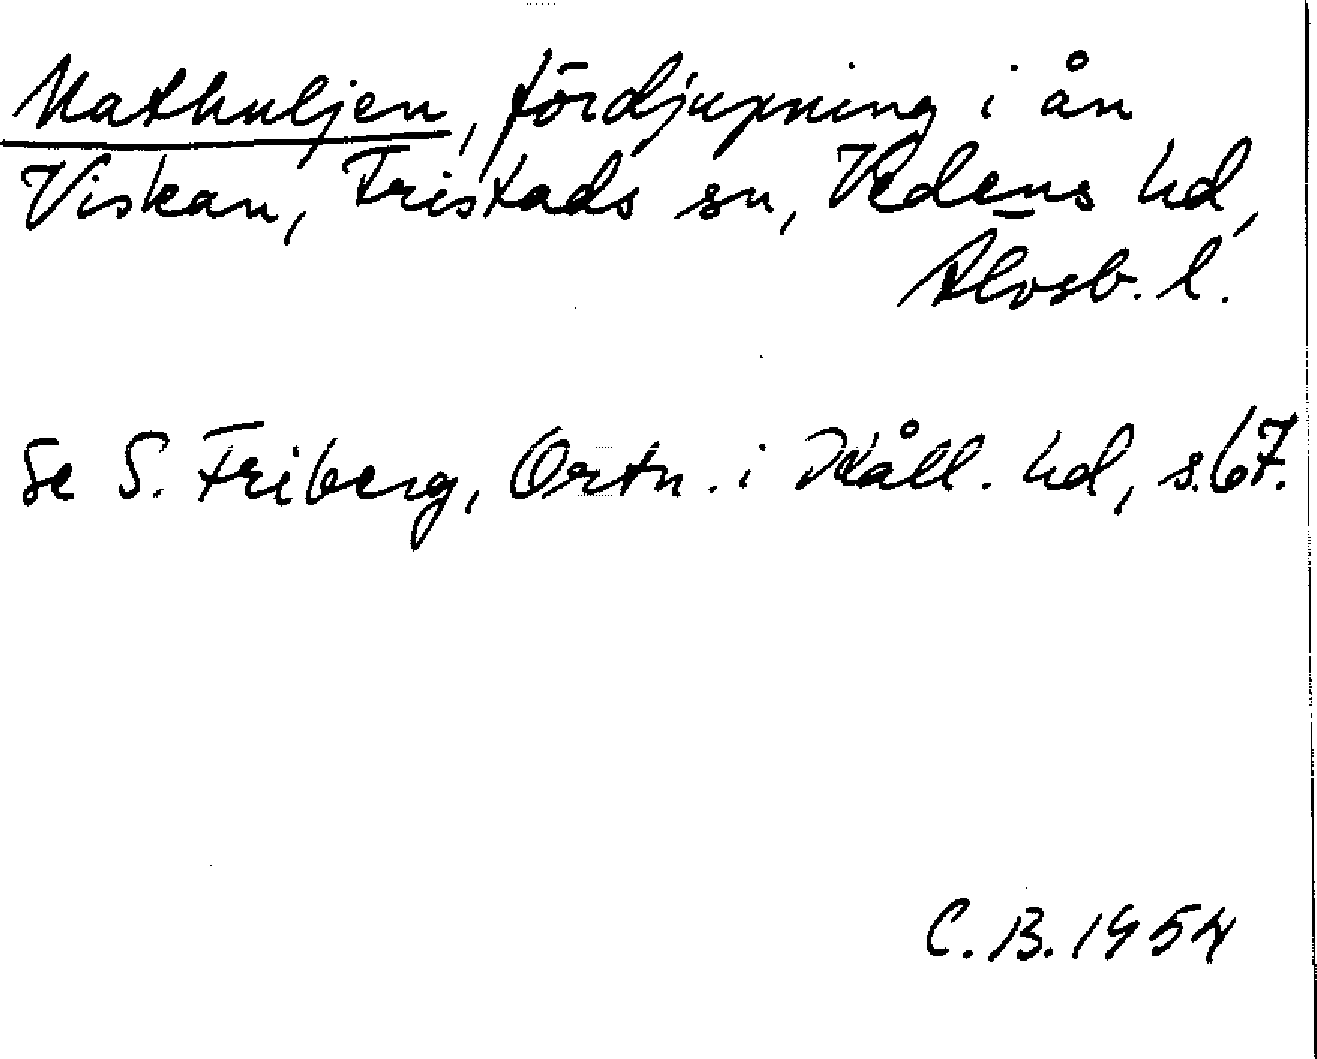 Mathuljen, fördjupning i ån
Viskan, Fristads sn, Vedens hd,
Älvsb. l.
Se S. Friberg, Ortn. i Kåll. hd, s. 67.
C. B. 1954